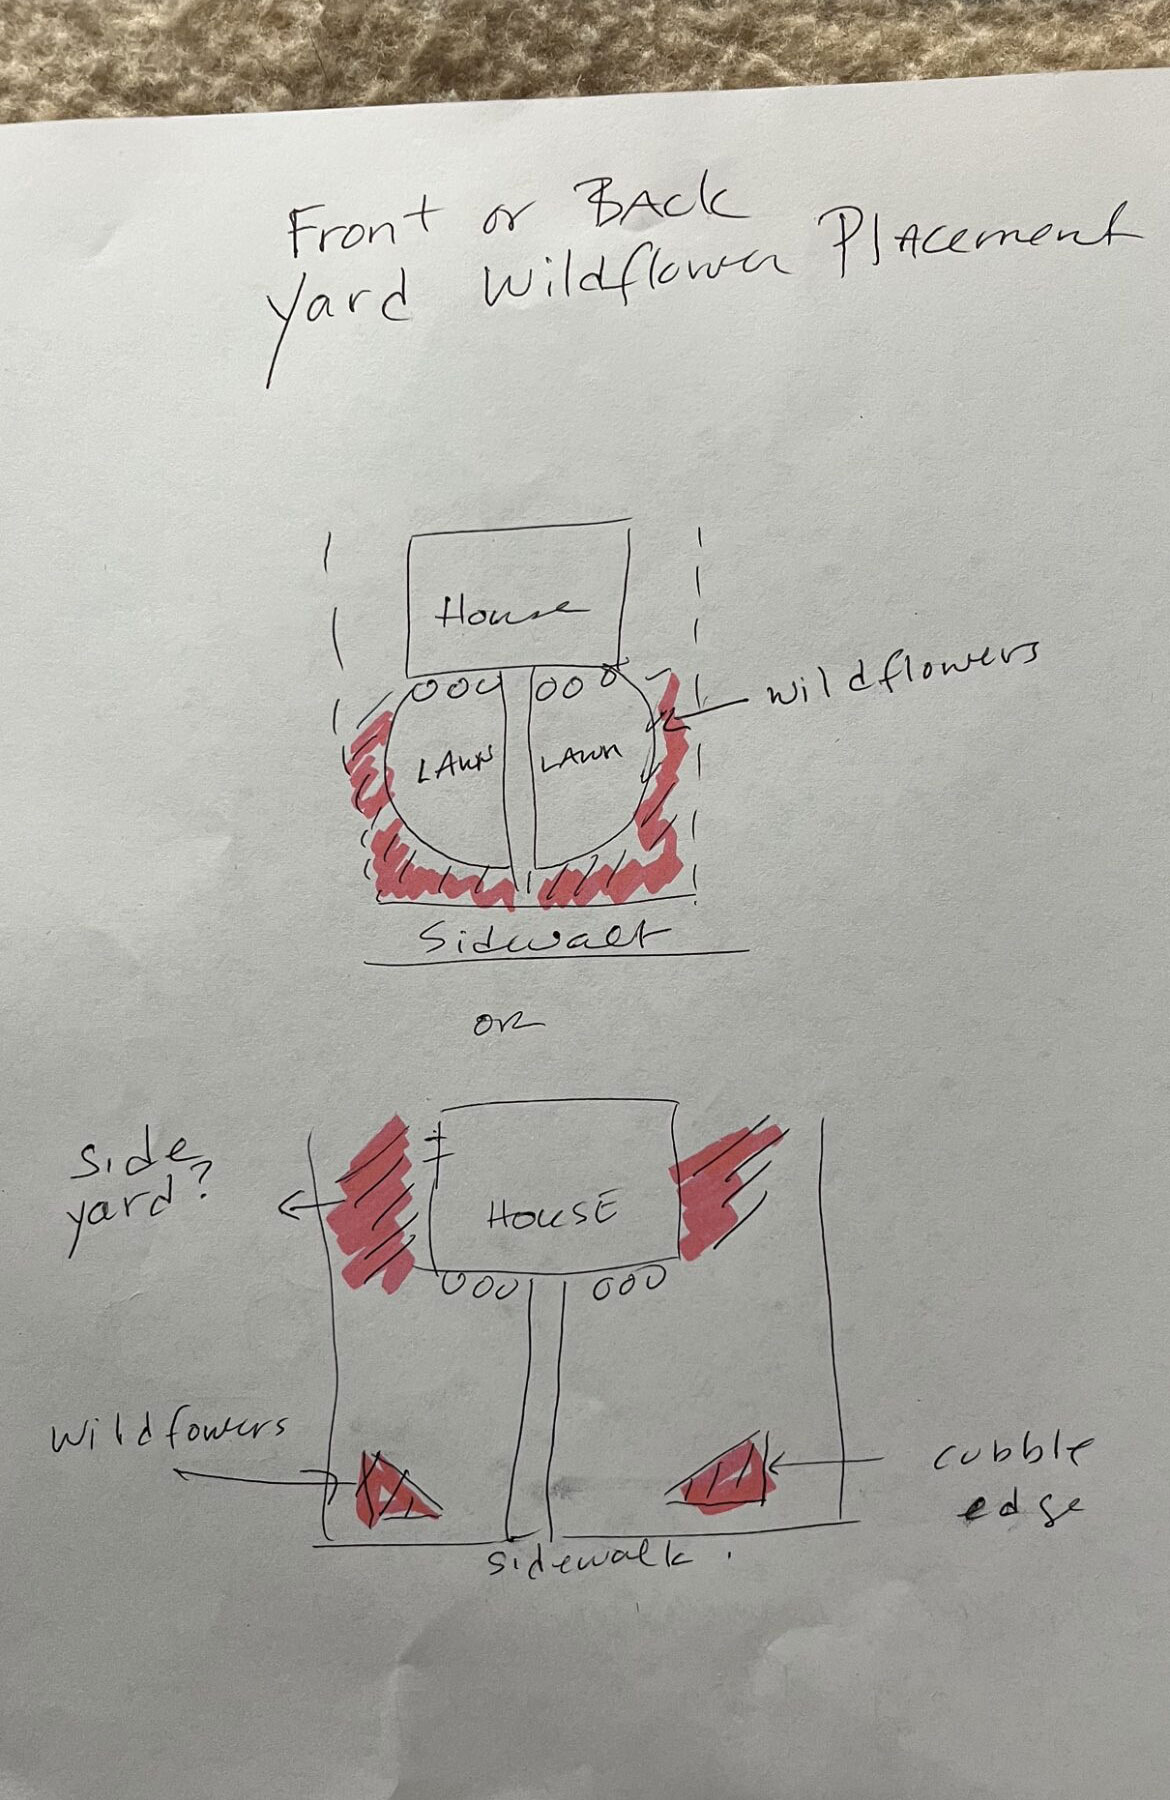 Front or BACK
yard Wildflower Placement
House
wildflowers
LAWN LAWN
Sidewalk
OR
Side
yard?
HOUSE
Wildfowers
cubble
edge
sidewalk.